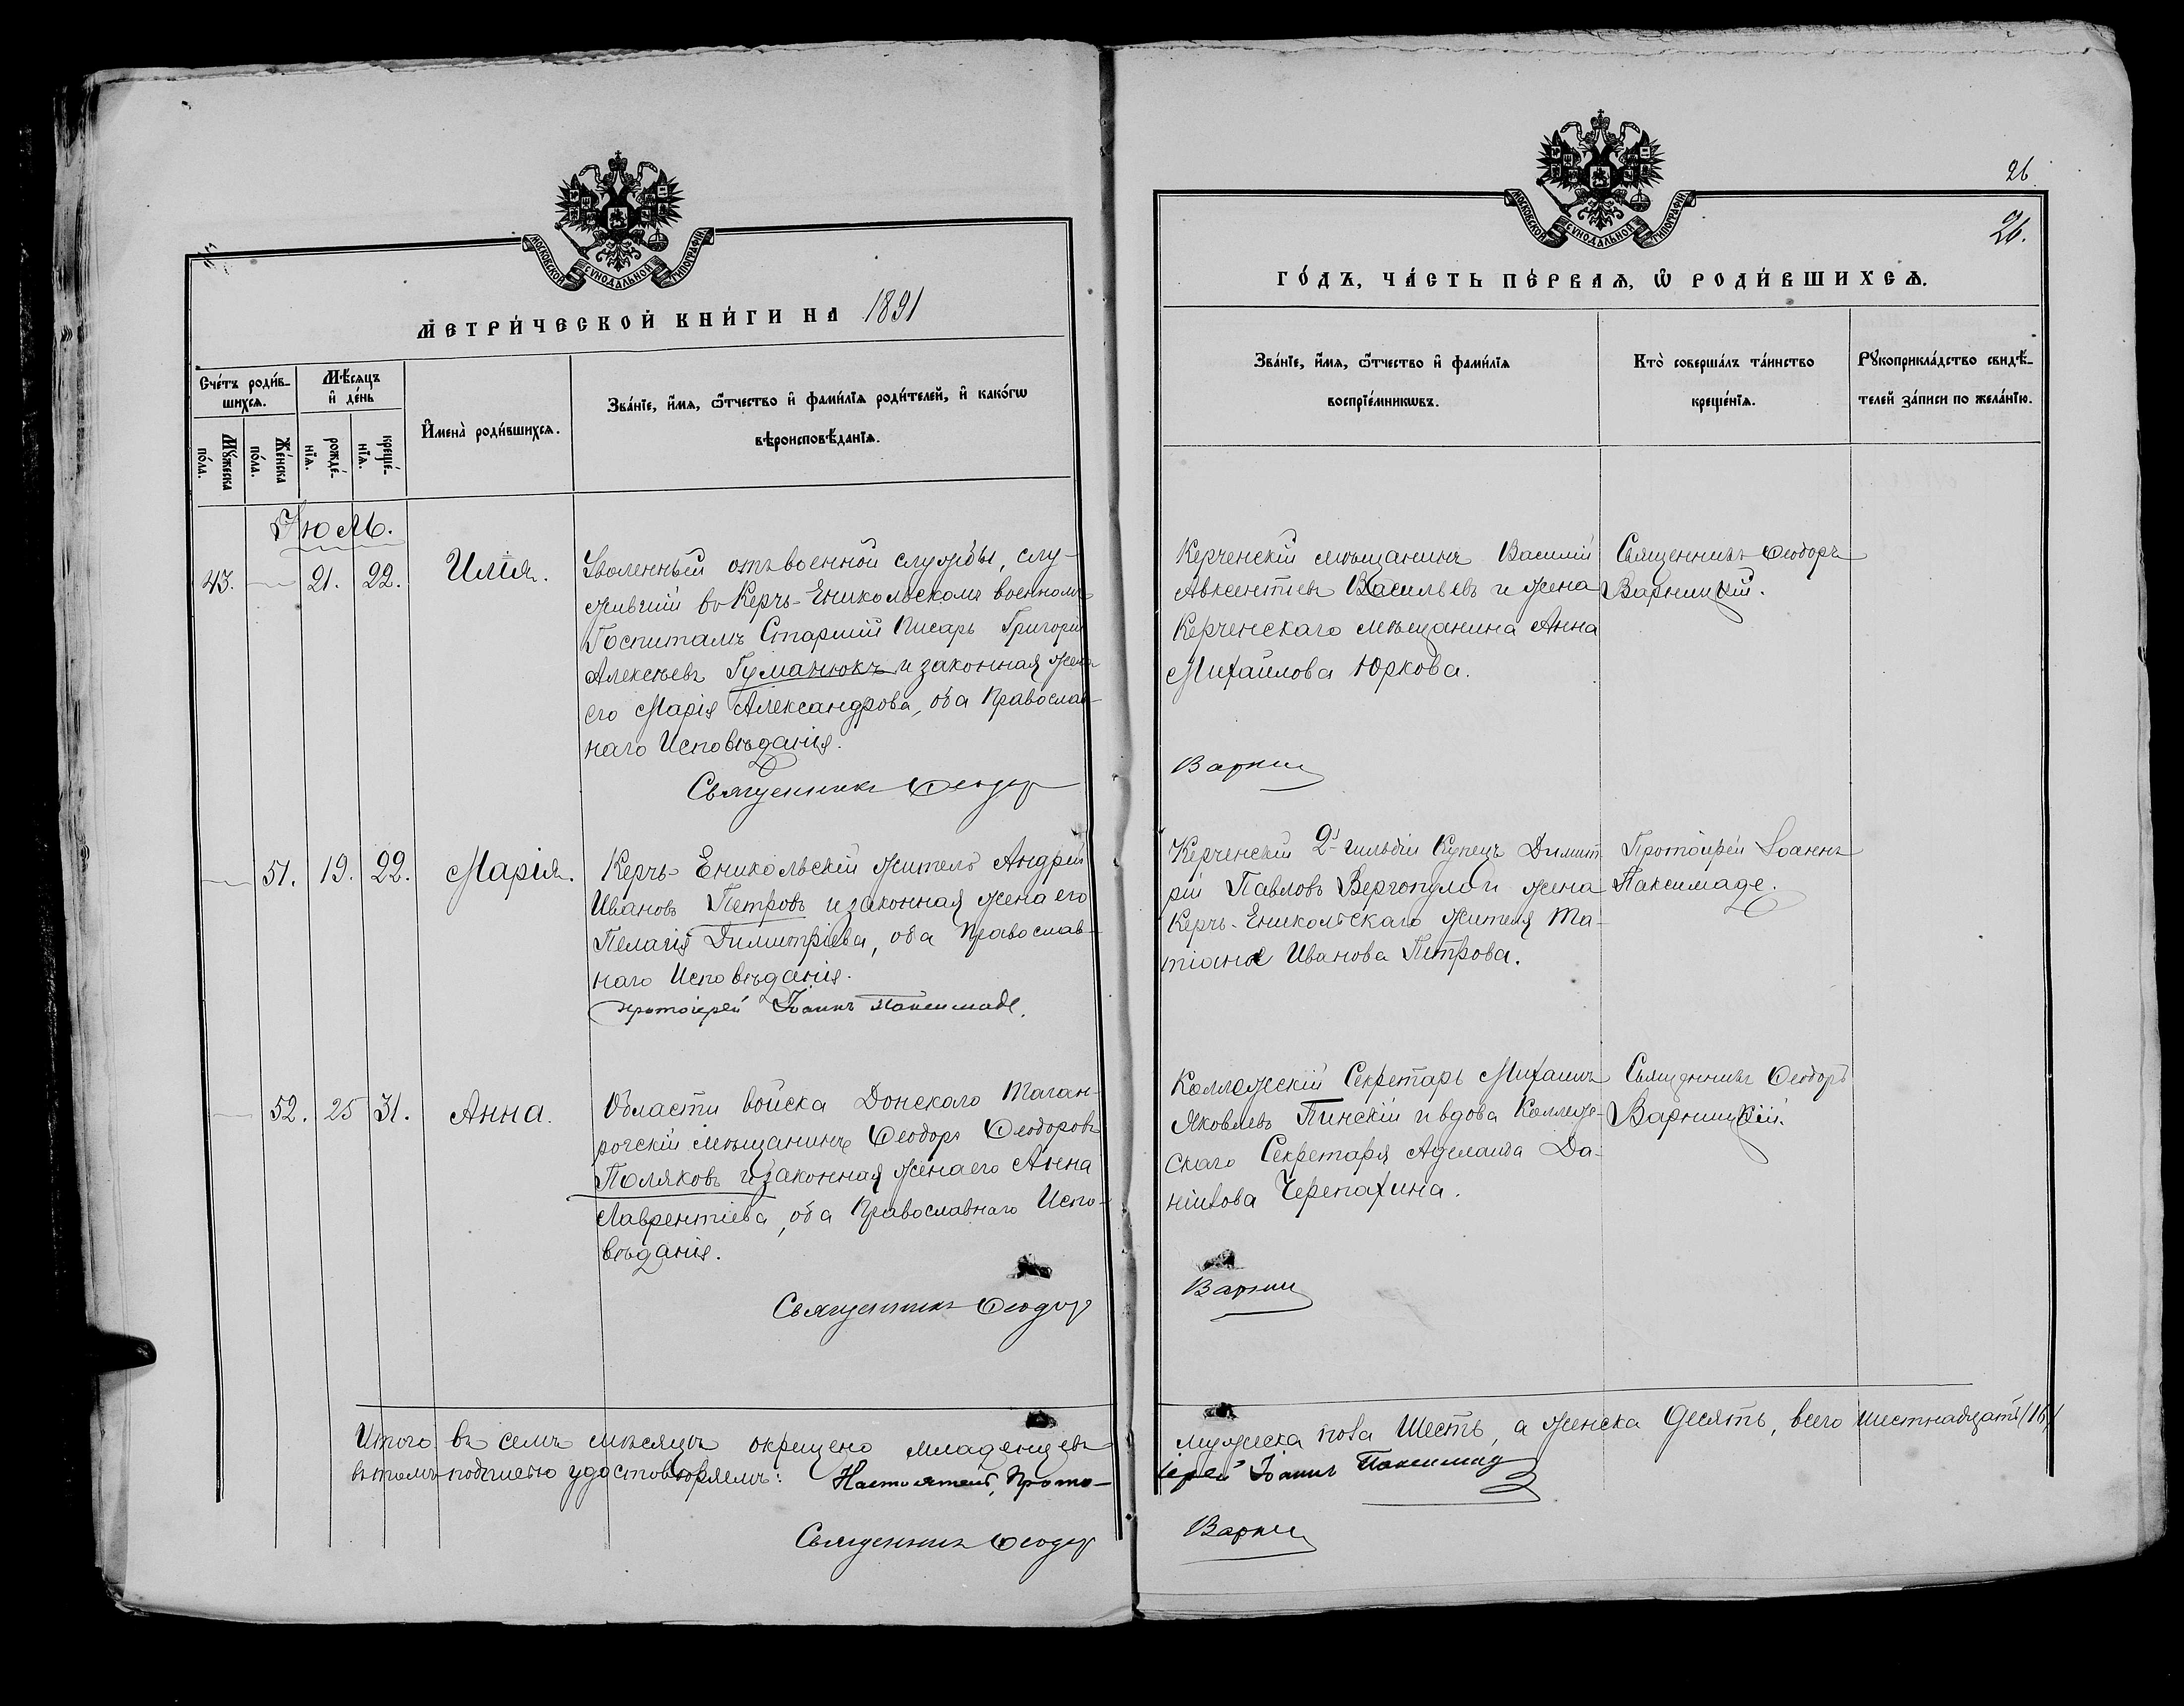 МОСКОВСКОЙ СѴНОДАЛЬНОЙ ТИПОГРАФІИ
МЕТРИ́ЧЕСКОЙ КНИ́ГИ НА 1891
Сче́тъ роди́в-
шихсѧ.
Мѣ́сѧцъ
и҆ де́нь
Мꙋ́жеска
по́ла.
Же́нска
по́ла.
рожде́-
нїѧ.
креще́-
нїѧ.
И҆мена̀ роди́вшихсѧ.
Зва́нїе, и҆́мѧ, ѻ҆́тчество и҆ фами́лїѧ роди́телей, и҆ како́гѡ
вѣроисповѣ́данїѧ.
Іюль.
43. — 21. 22. Илія.
Уволенный отъ военной службы, слу-
жившій въ Керчь-Еникольскомъ военномъ
Госпиталѣ Старшій Писарь Григорій
Алексѣевъ Гуманюкъ и законная жена
его Марія Александрова, оба Православ-
наго Исповѣданія.
Священникъ Ѳеодор
— 51. 19. 22. Марія.
Керчь-Еникольскій житель Андрей
Ивановъ Петровъ и законная жена его
Пелагія Димитріева, оба Православ-
наго Исповѣданія.
Протоіерей Іоаннъ Паксимаде.
— 52. 25 31. Анна.
Области войска Донскаго Таган-
рогскій мѣщанинъ Ѳеодоръ Ѳеодоровъ
Поляковъ и законная жена его Анна
Лаврентіева, оба Православнаго Испо-
вѣданія.
Священникъ Ѳеодор
Итого въ семъ мѣсяцѣ окрещено младенцевъ
въ томъ подписью удостовѣряемъ: Настоятель, Прото-
Священникъ Ѳеодор
26
26.
МОСКОВСКОЙ СѴНОДАЛЬНОЙ ТИПОГРАФІИ
ГО́ДЪ, ЧА́СТЬ ПЕ́РВАѦ, Ѡ҆ РОДИ́ВШИХСѦ.
Зва́нїе, и҆́мѧ, ѻ҆́тчество и҆ фами́лїѧ
воспрїе́мникѡвъ.
Кто̀ соверша́лъ та́инство
креще́нїѧ.
Рꙋкоприкла́дство свидѣ́-
телей за́писи по жела́нїю.
Керченскій мѣщанинъ Василій
Авксентіевъ Васильевъ и жена
Керченскаго мѣщанина Анна
Михайлова Юркова.
Священникъ Ѳеодоръ
Варницкій.
Варни
Керченскій 2й гильдіи Купецъ Димит
рій Павловъ Вергопуло и жена
Керчь-Еникольскаго жителя Та-
тіана Иванова Петрова.
Протоіерей Іоаннъ
Паксимаде.
Коллежскій Секретарь Михаилъ
Яковлевъ Пинскій и вдова Коллеж-
скаго Секретаря Аделаида Да-
ніилова Черепахина.
Священникъ Ѳеодоръ
Варницкій.
Варни
мужеска пола Шесть, а женска Десять, всего шестнадцать /16/
іерей Іоаннъ Паксимад
Варни